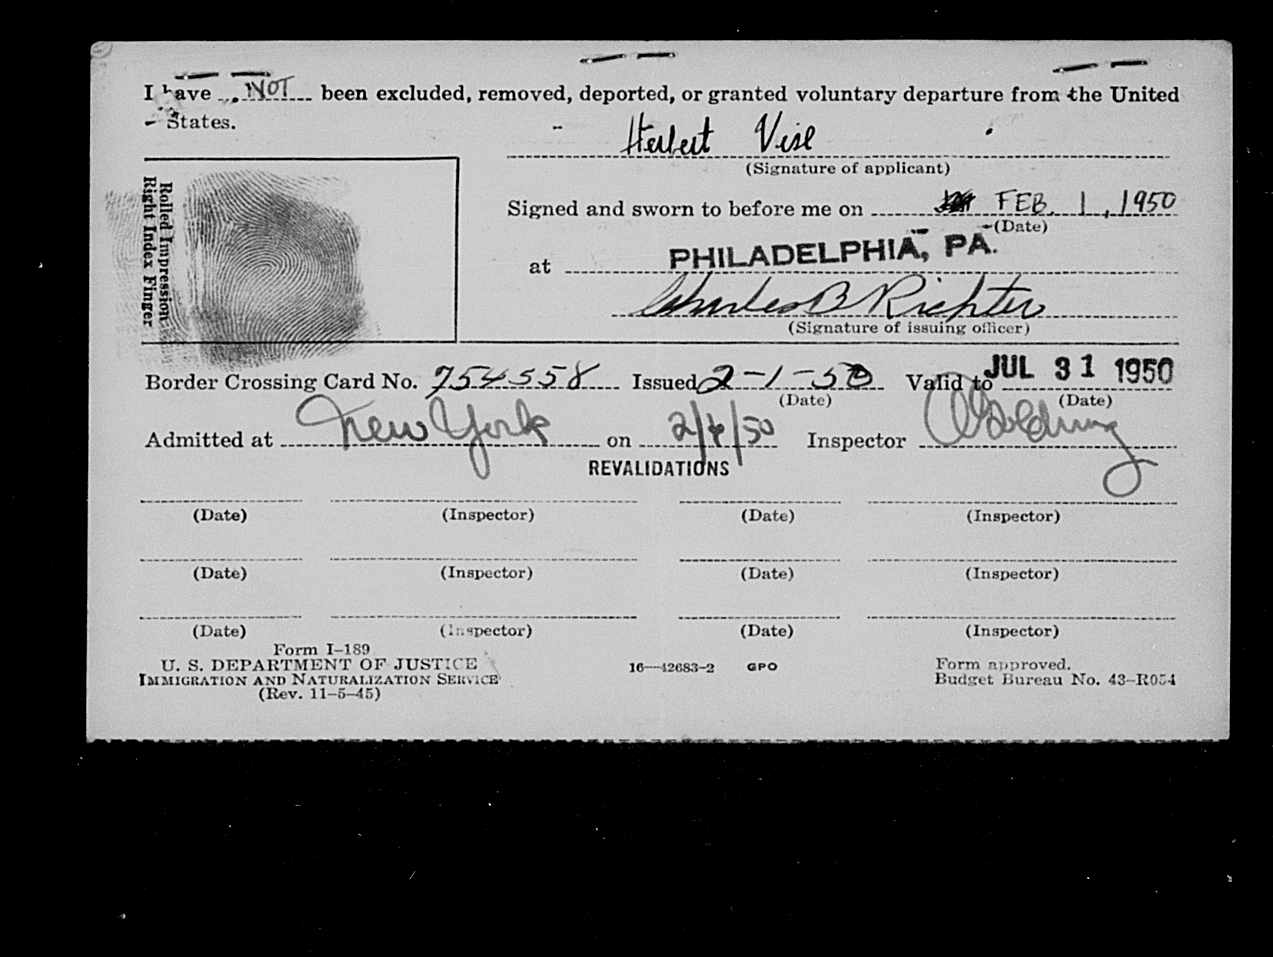 I have NOT been excluded, removed, deported, or granted voluntary departure from the United
States.
Herbert Vise
(Signature of applicant)
Rolled Impression
Right Index Finger
Signed and sworn to before me on FEB. 1, 1950
(Date)
at PHILADELPHIA, PA.
Charles B Richter
(Signature of issuing officer)
Border Crossing Card No. 754558 Issued 2-1-50 Valid to JUL 31 1950
(Date) (Date)
Admitted at New York on 2/4/50 Inspector
REVALIDATIONS
(Date) (Inspector) (Date) (Inspector)
(Date) (Inspector) (Date) (Inspector)
(Date) (Inspector) (Date) (Inspector)
Form I-189
U. S. DEPARTMENT OF JUSTICE
IMMIGRATION AND NATURALIZATION SERVICE
(Rev. 11-5-45)
16—42683-2 GPO
Form approved.
Budget Bureau No. 43-R054